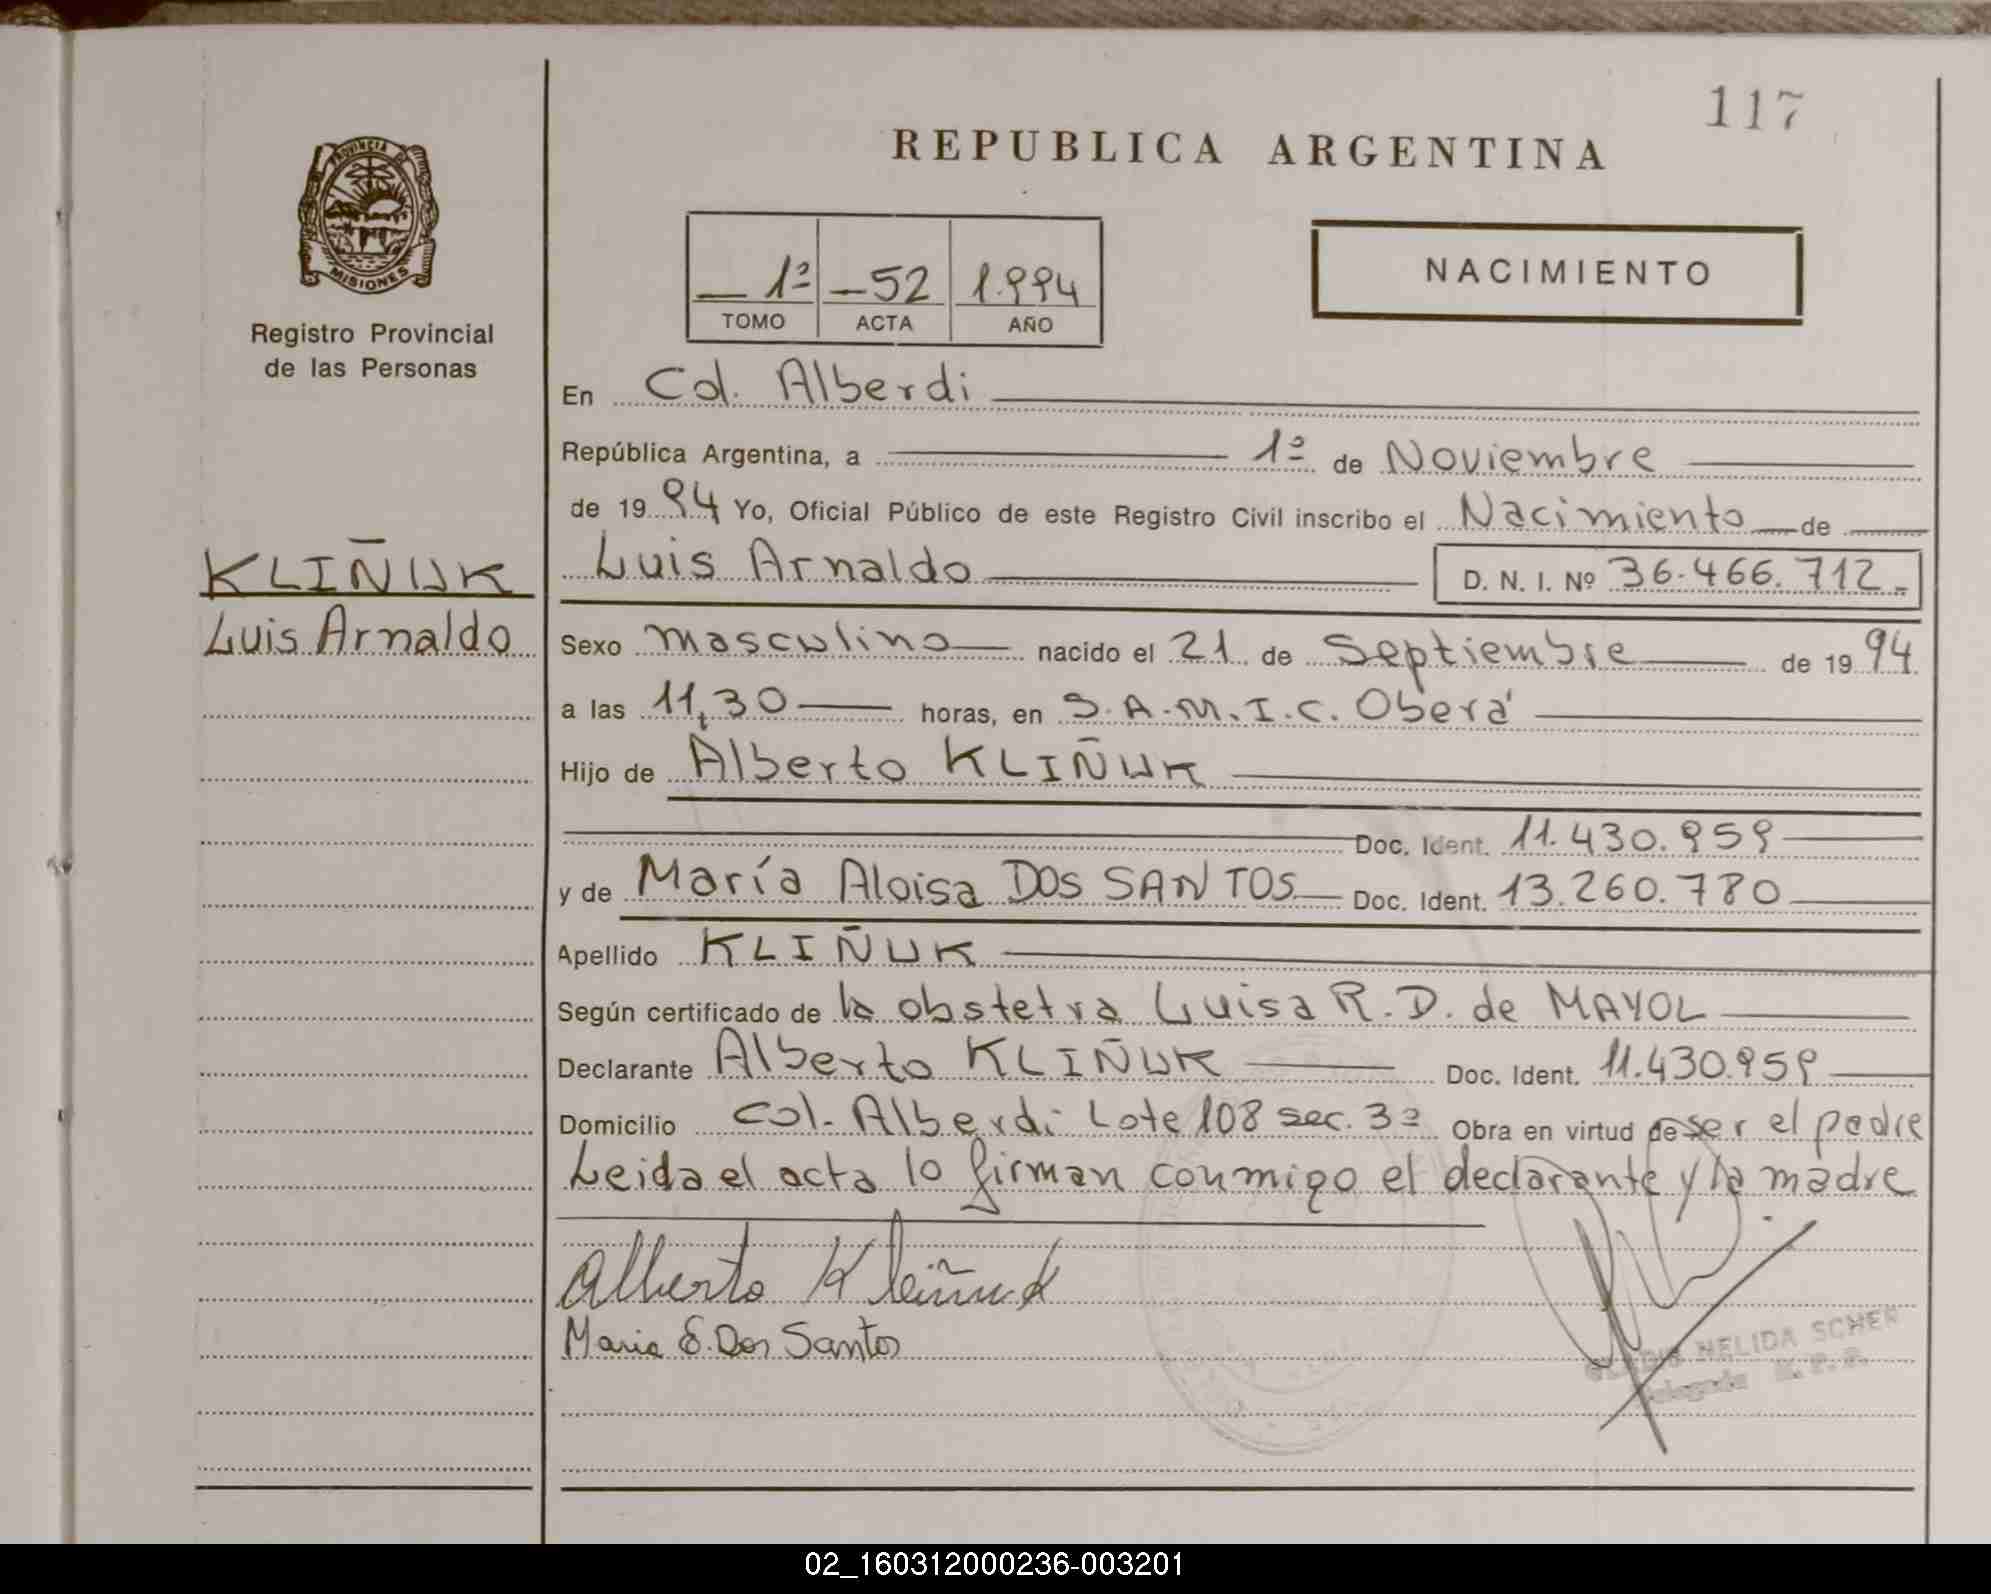 117
REPUBLICA ARGENTINA
PROVINCIA DE
MISIONES
Registro Provincial
de las Personas
1º -52 1.994
TOMO ACTA AÑO
NACIMIENTO
En Col. Alberdi
República Argentina, a 1º de Noviembre
de 1994 Yo, Oficial Público de este Registro Civil inscribo el Nacimiento de
Luis Arnaldo D. N. I. Nº 36.466.712.-
KLIÑUK
Luis Arnaldo
Sexo masculino nacido el 21 de Septiembre de 1994.
a las 11,30 horas, en S.A.M.I.C. Oberá
Hijo de Alberto KLIÑUK
Doc. Ident. 11.430.959
y de María Aloisa DOS SANTOS Doc. Ident. 13.260.780
Apellido KLIÑUK
Según certificado de la obstetra Luisa R. D. de MAYOL
Declarante Alberto KLIÑUK Doc. Ident. 11.430.959
Domicilio Col. Alberdi Lote 108 sec. 3ª Obra en virtud de ser el padre
Leida el acta lo firman conmigo el declarante y la madre
Alberto Kleiñuk
Maria E. Dos Santos
NELIDA SCHER
02_160312000236-003201